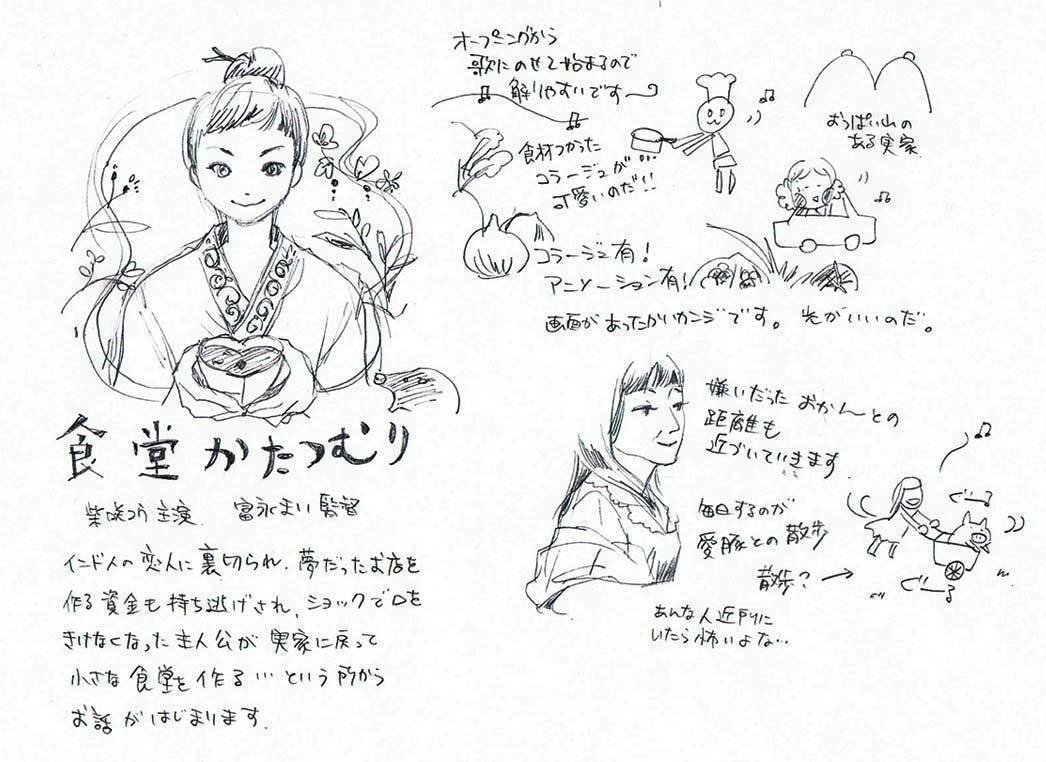 食堂かたつむり
柴咲コウ主演 富永まい監督
インド人の恋人に裏切られ、夢だったお店を
作る資金も持ち逃げされ、ショックで口を
きけなくなった主人公が実家に戻って
小さな食堂を作る…という所から
お話がはじまります。
オープニングから
歌にのせて始まるので
解りやすいです
食材つかった
コラージュが…
可愛いのだ!!
コラージュ有!
アニメーション有!
画面があったかいカンジです。 光がいいのだ。
おっぱい山の
ある実家
嫌いだった おかんとの
距離も
近づいていきます
毎日するのが
愛豚との散歩
散歩?→
ぐーる
ぐーる
あんな人近所に
いたら怖いよな…